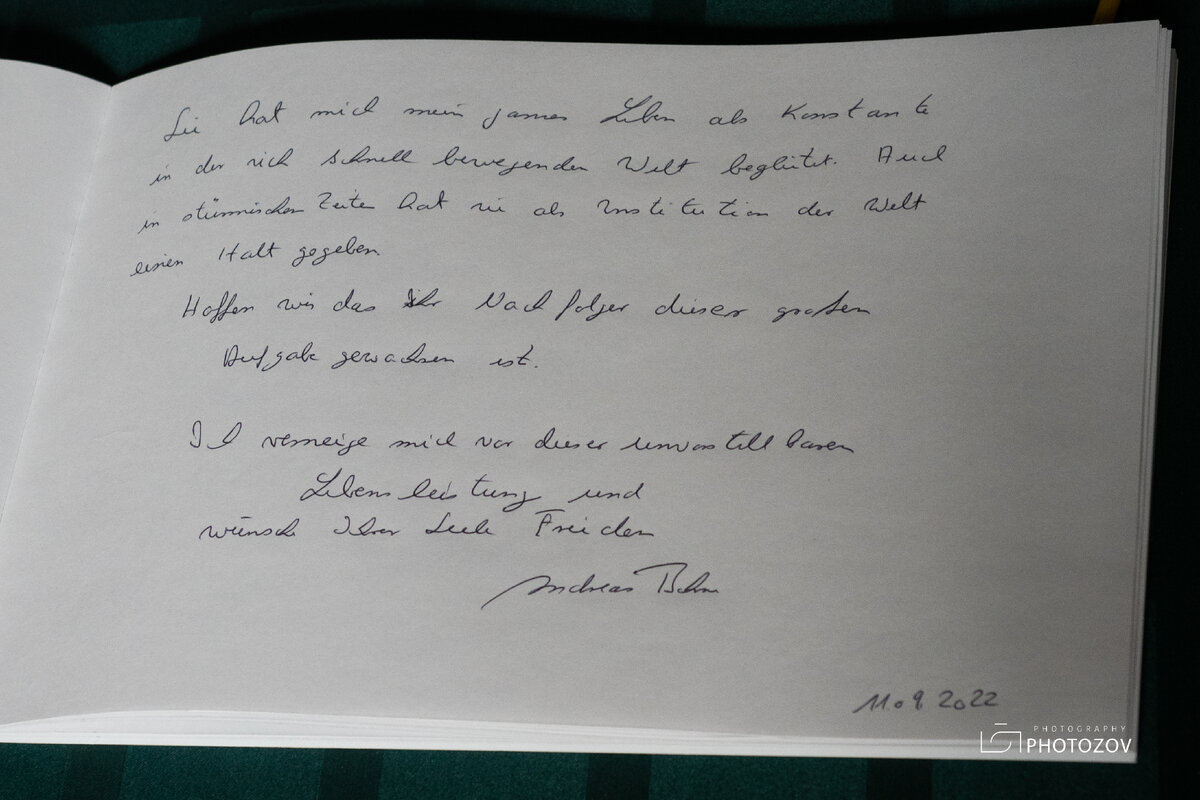 Sie hat mich mein ganzes Leben als Konstante
in der sich schnell bewegenden Welt begleitet. Auch
in stürmischen Zeiten hat sie als Institution der Welt
einen Halt gegeben
Hoffen wir das Ihr Nachfolger dieser großen
Aufgabe gewachsen ist.
Ich verneige mich vor dieser unvorstellbaren
Lebensleistung und
wünsche Ihrer Seele Frieden
Andreas
11.09.2022
PHOTOGRAPHY
PHOTOZOV